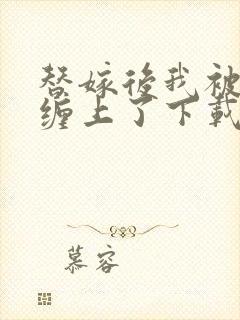 替嫁後我被
缠上了下載
慕容